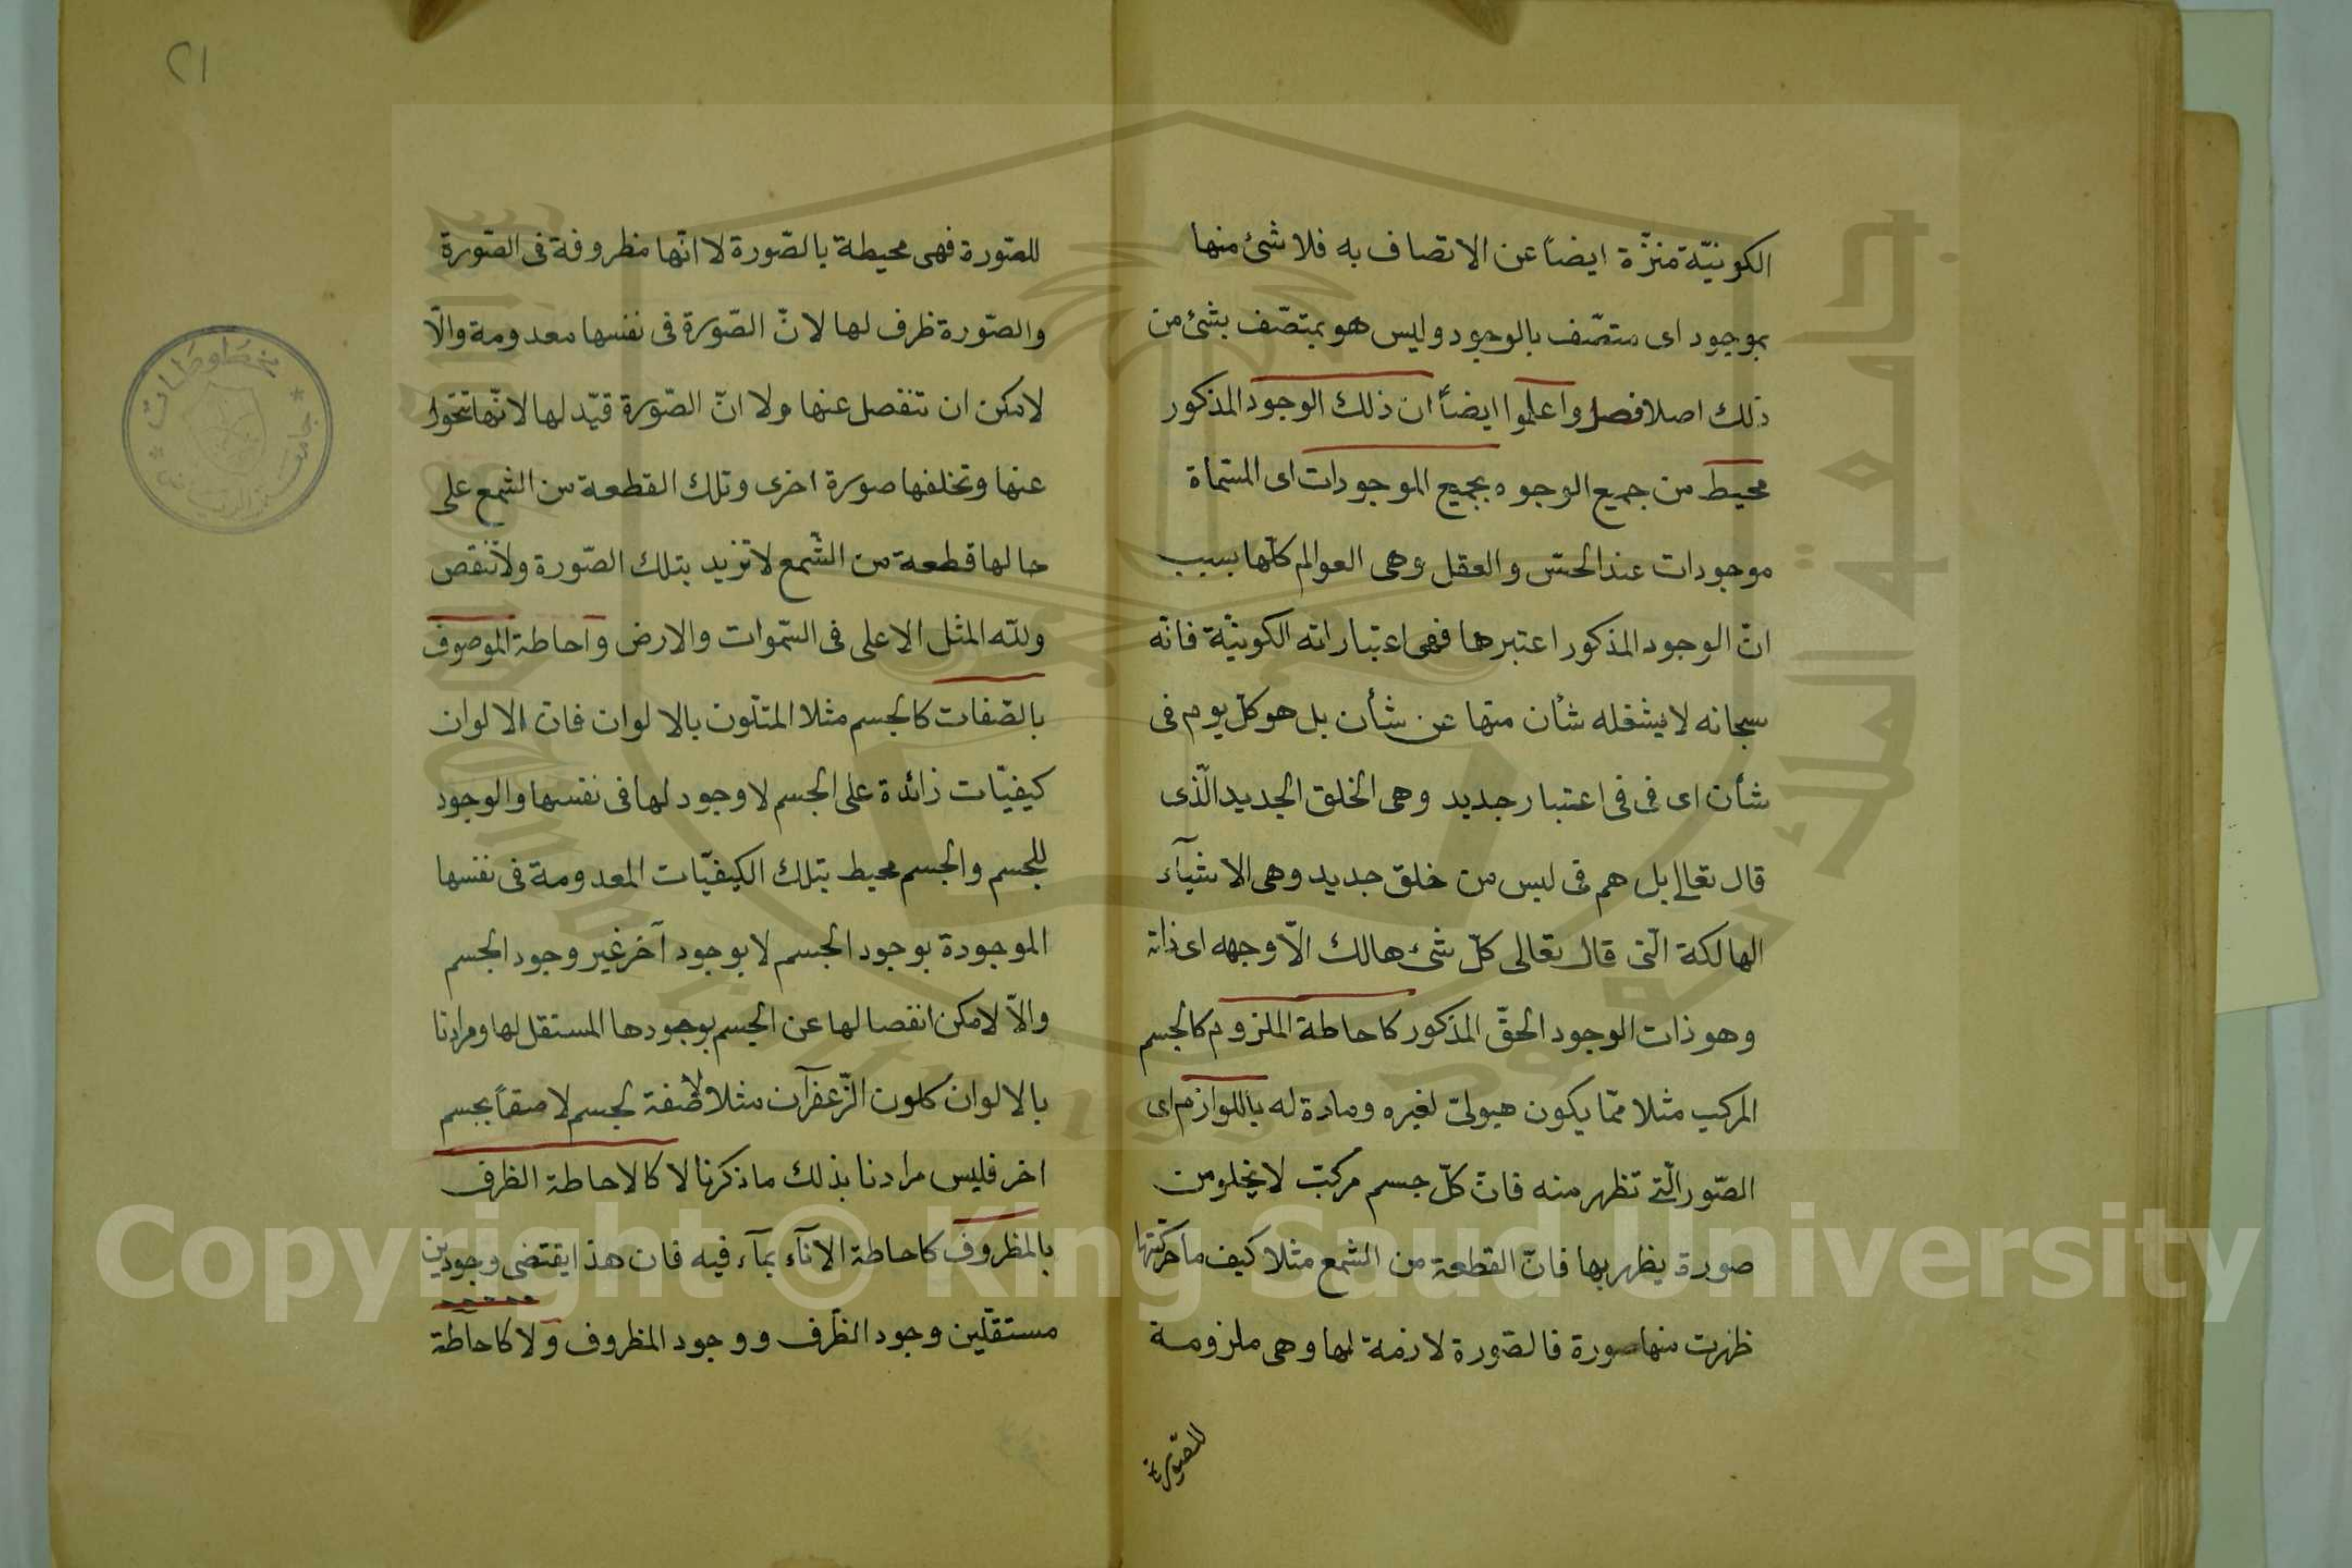 الكونيّة منزّة ايضاً عن الاتصاف به فلا شئ منها
بموجود اى متصّف بالوجود وليس هو بمتصّف بشئ من
ذلك اصلا فصل واعلموا ايضاً ان ذلك الوجود المذكور
محيط من جميع الوجوه بجميع الموجودات اى المسّماة
موجودات عند الحسّ والعقل وهى العوالم كلّها بسبب
انّ الوجود المذكور اعتبرها فهى اعتباراته الكونيّة فانّه
سبحانه لا يشغله شأن منها عن شأن بل هو كلّ يوم فى
شأن اى فى فى اعتبار جديد وهى الخلق الجديد الّذى
قال تعالى بل هم فى لبس من خلق جديد وهى الاشيآء
الهالكة الّتى قال تعالى كلّ شئ هالك الّا وجهه اى ذاته
وهو ذات الوجود الحقّ المذكور كاحاطة الملزوم كالجسم
المركب مثلا ممّا يكون هيولىّ لغيره ومادة له باللوازم اى
الصّور الّتى تظهر منه فانّ كلّ جسم مركبّ لا يخلو من
صورة يظهر بها فانّ القطعة من الشمع مثلا كيف ما حركتها
ظهرت منها صورة فالصّورة لازمة لها وهى ملزومة
للصّورة
٢١
للصّورة فهى محيطة بالصّورة لا انّها مظروفة فى الصّورة
والصّورة ظرف لها لانّ الصّورة فى نفسها معدومة والّا
لامكن ان تنفصل عنها ولا انّ الصّورة قيّد لها لانّها تتحوّل
عنها وتخلفها صورة اخرى وتلك القطعة من الشمع على
حالها قطعة من الشّمع لا تزيد بتلك الصّورة ولا تنقص
ولله المثل الاعلى فى السّموات والارض واحاطة الموصوف
بالصّفات كالجسم مثلا المتلّون بالالوان فان الالوان
كيفيّات زائدة على الجسم لا وجود لها فى نفسها والوجود
للجسم والجسم محيط بتلك الكيفيّات المعدومة فى نفسها
الموجودة بوجود الجسم لا بوجود آخر غير وجود الجسم
والاّ لامكن انفصالها عن الجسم بوجودها المستقل لها ومرادنا
بالالوان كلون الزّعفرآن مثلا صفة لجسم لاصقاً بجسم
اخر فليس مرادنا بذلك ما ذكرنا لا كالاحاطة الظرف
بالمظروف كاحاطة الانآء بمآء فيه فان هذا يقتضى وجودين
مستقلّين وجود الظّرف ووجود المظروف ولا كاحاطة
مخطوطات
جامعة
Copyright © King Saud University